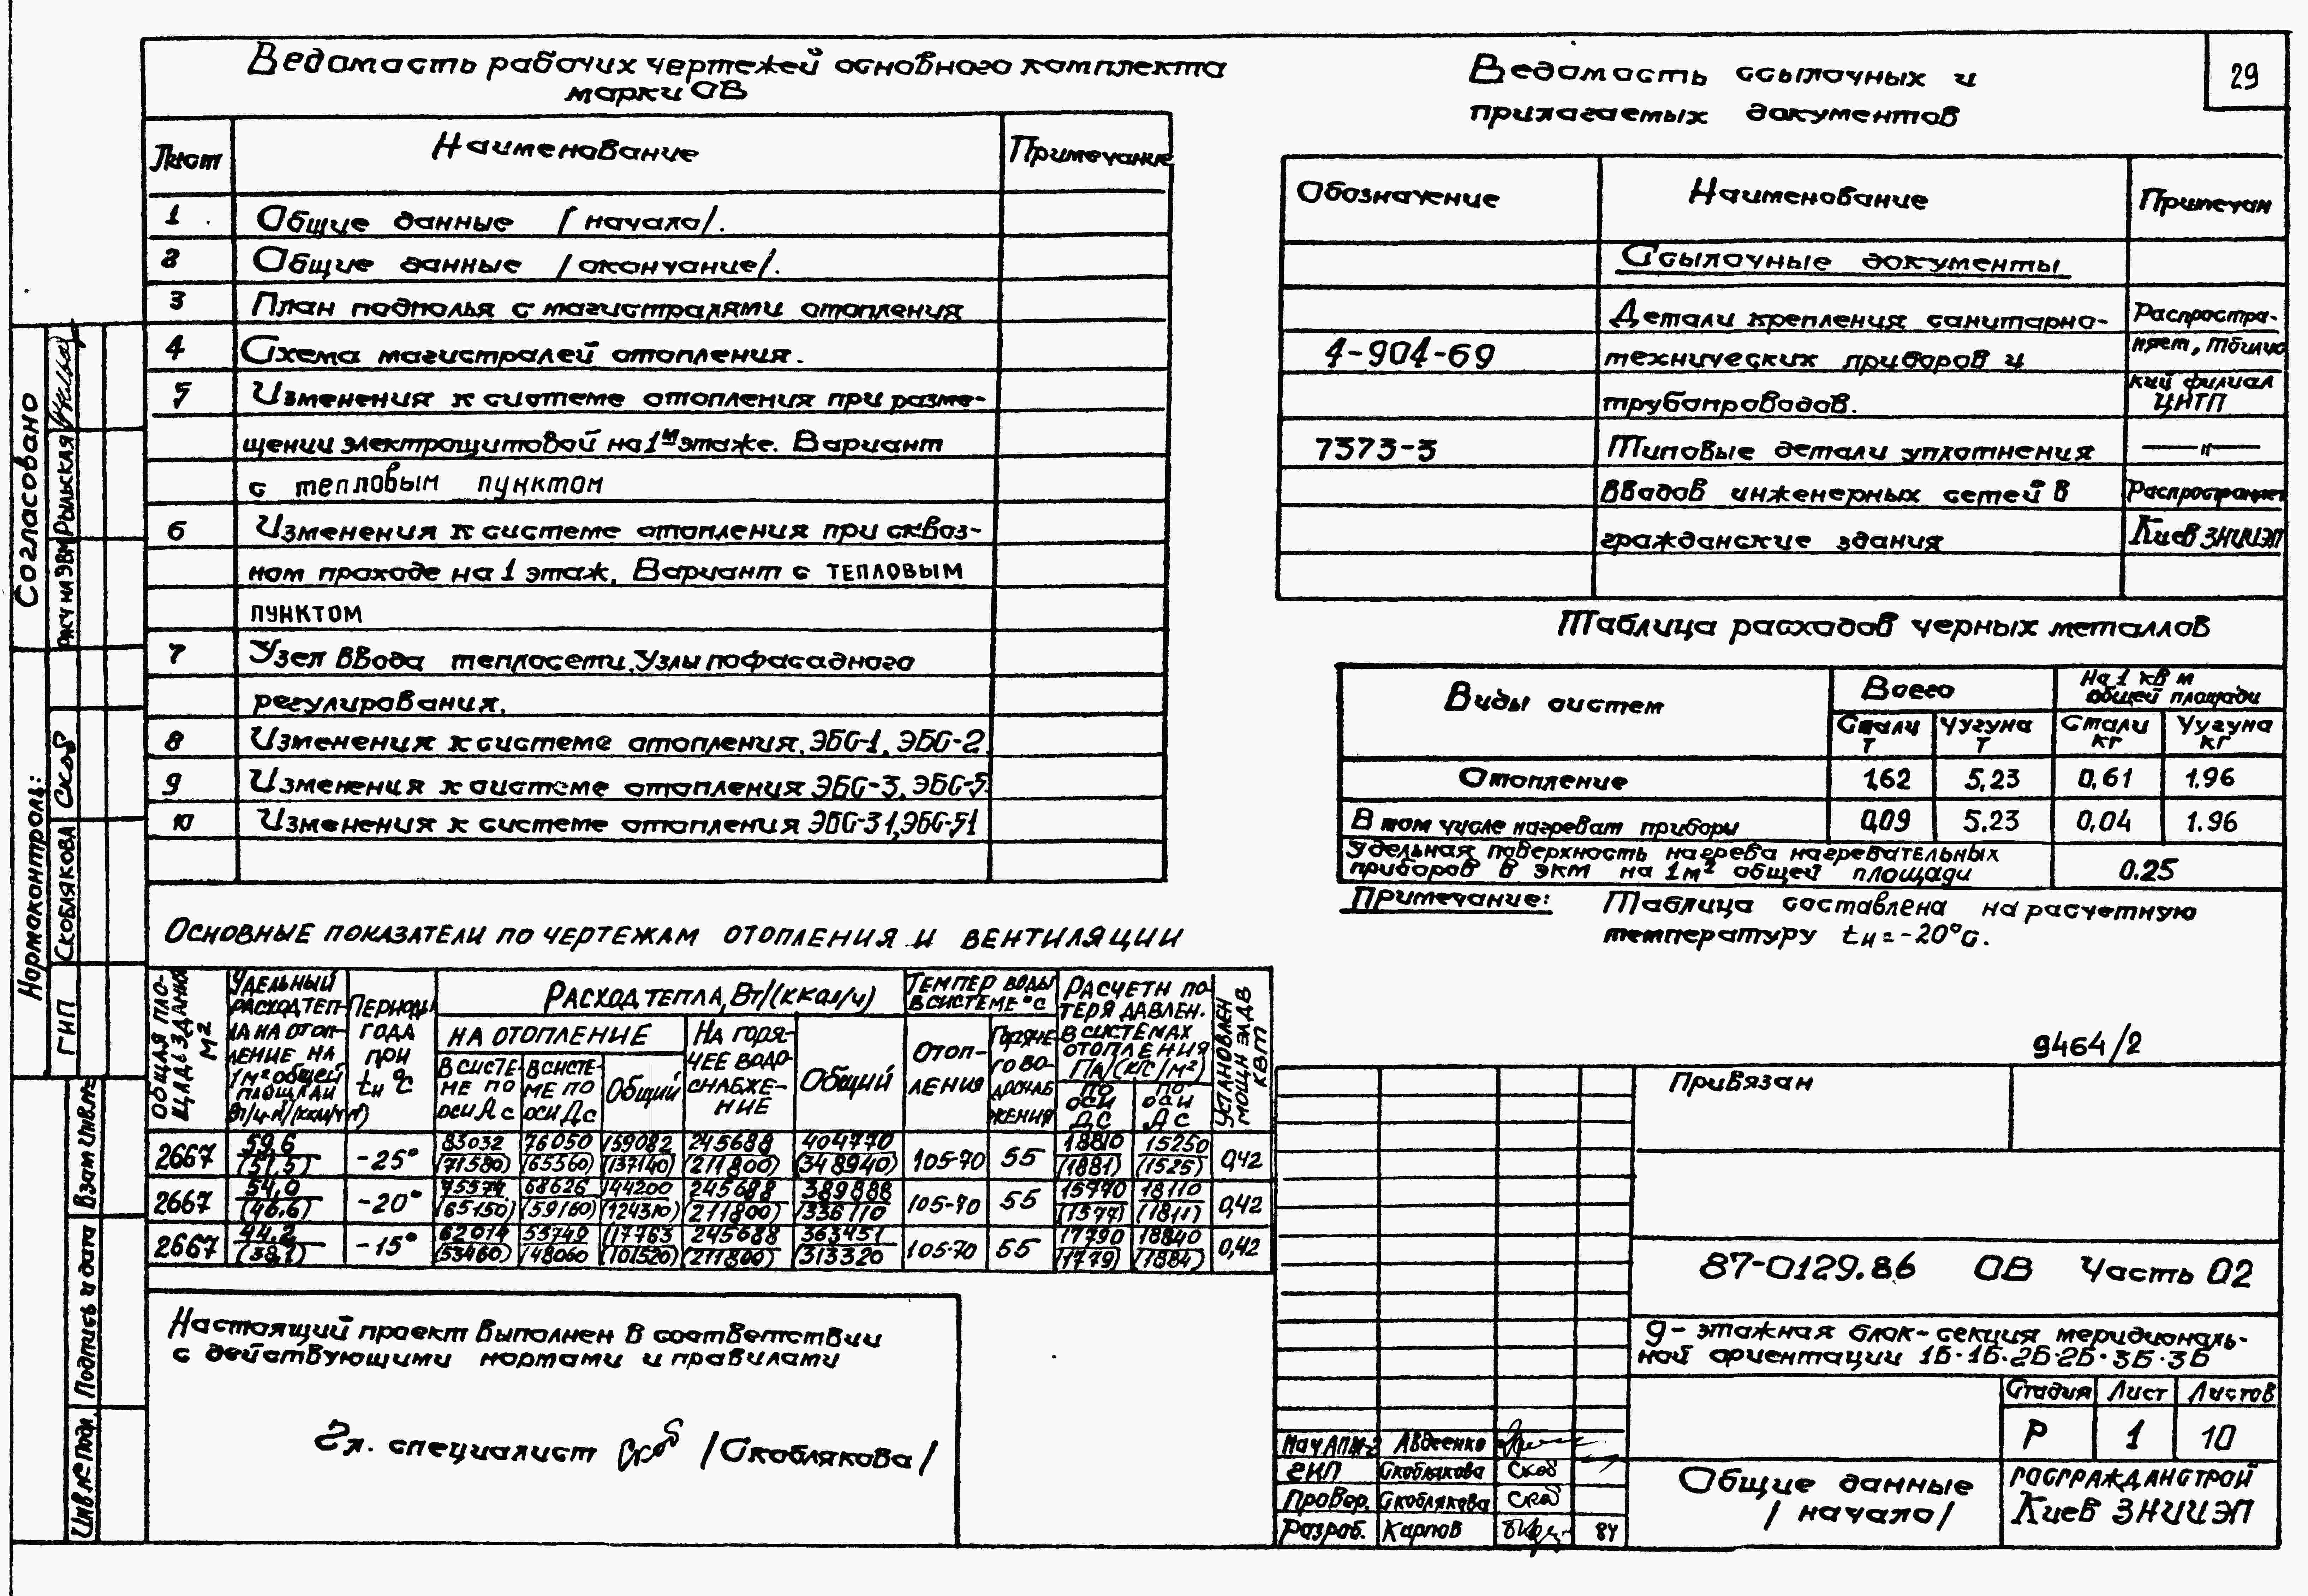 29
Ведомость рабочих чертежей основного комплекта
марки ОВ
Лист Наименование Примечание
1 Общие данные /начало/.
2 Общие данные /окончание/.
3 План подполья с магистралями отопления
4 Схема магистралей отопления.
5 Изменения к системе отопления при разме-
щении электрощитовой на 1м этаже. Вариант
с тепловым пунктом
6 Изменения к системе отопления при сквоз-
ном проходе на 1 этаж. Вариант с тепловым
пунктом
7 Узел ввода теплосети. Узлы пофасадного
регулирования.
8 Изменения к системе отопления. ЭБС-1, ЭБС-2.
9 Изменения к системе отопления ЭБС-3, ЭБС-5.
10 Изменения к системе отопления ЭБС-31, ЭБС-51
Ведомость ссылочных и
прилагаемых документов
Обозначение Наименование Примечан
Ссылочные документы
Детали крепления санитарно- Распростра-
4-904-69 технических приборов и няет, Тбилис
трубопроводов. кий филиал
ЦИТП
7373-3 Типовые детали уплотнения —"—
вводов инженерных сетей в Распространяет
гражданские здания Киев ЗНИИЭП
Таблица расходов черных металлов
Виды систем Всего На 1 кв м
общей площади
Стали т Чугуна т Стали кг Чугуна кг
Отопление 1,62 5,23 0,61 1.96
В том числе нагреват приборы 0,09 5.23 0,04 1.96
Удельная поверхность нагрева нагревательных
приборов в экм на 1м² общей площади 0.25
Примечание: Таблица составлена на расчетную
температуру tн=-20°С.
Основные показатели по чертежам отопления и вентиляции
Общая пло-
щадь здания
м2
Удельный
расход теп-
ла на отоп-
ление на
1м² общей
площади
Вт/ч.м²/(ккал/ч м²)
Периоды
года
при
tн °С
Расход тепла, Вт/(ккал/ч)
на отопление
В систе-
ме по
оси Ас
В систе-
ме по
оси Дс
Общий
На горя-
чее водо-
снабже-
ние
Общий
Темпер воды
в системе °С
Отоп-
ления
Горяче-
го во-
доснаб
жения
Расчетн по-
теря давлен.
в системах
отопления
Па/(кгс/м²)
по
оси
Дс
по
оси
Дс
Установлен
мощн эл.дв
кВт
2667 59,6 (51,5) -25° 83032 (71580) 76050 (65560) 159082 (137140) 245688 (211800) 404770 (348940) 105-70 55 18810 (1881) 15250 (1525) 0,42
2667 54,0 (46,6) -20° 75574 (65150) 68626 (59160) 144200 (124310) 245688 (211800) 389888 (336110 105-70 55 15770 (1577) 18110 (1811) 0,42
2667 44,2 (38,1) -15° 62014 (53460) 55749 (48060 117763 (101520) 245688 (211800) 363451 (313320 105-70 55 17790 (1779) 18840 (1884) 0,42
Настоящий проект выполнен в соответствии
с действующими нормами и правилами
Гл. специалист Скоб /Скоблякова/
9464/2
Привязан
87-0129.86 ОВ Часть 02
9-этажная блок-секция меридиональ-
ной ориентации 1Б·1Б·2Б·2Б·3Б·3Б
Стадия Лист Листов
Р 1 10
Нач АПМ-2 Авдеенко
ГИП Скоблякова Скоб
Провер. Скоблякова Скоб
Разраб. Карпов 84
Общие данные
/начало/
Госгражданстрой
Киев ЗНИИЭП
Согласовано
Расч на ЭВМ Рыльская
Нормоконтроль:
ГИП Скоблякова Скоб
Взам инв.№
Подпись и дата
Инв.№ подл.